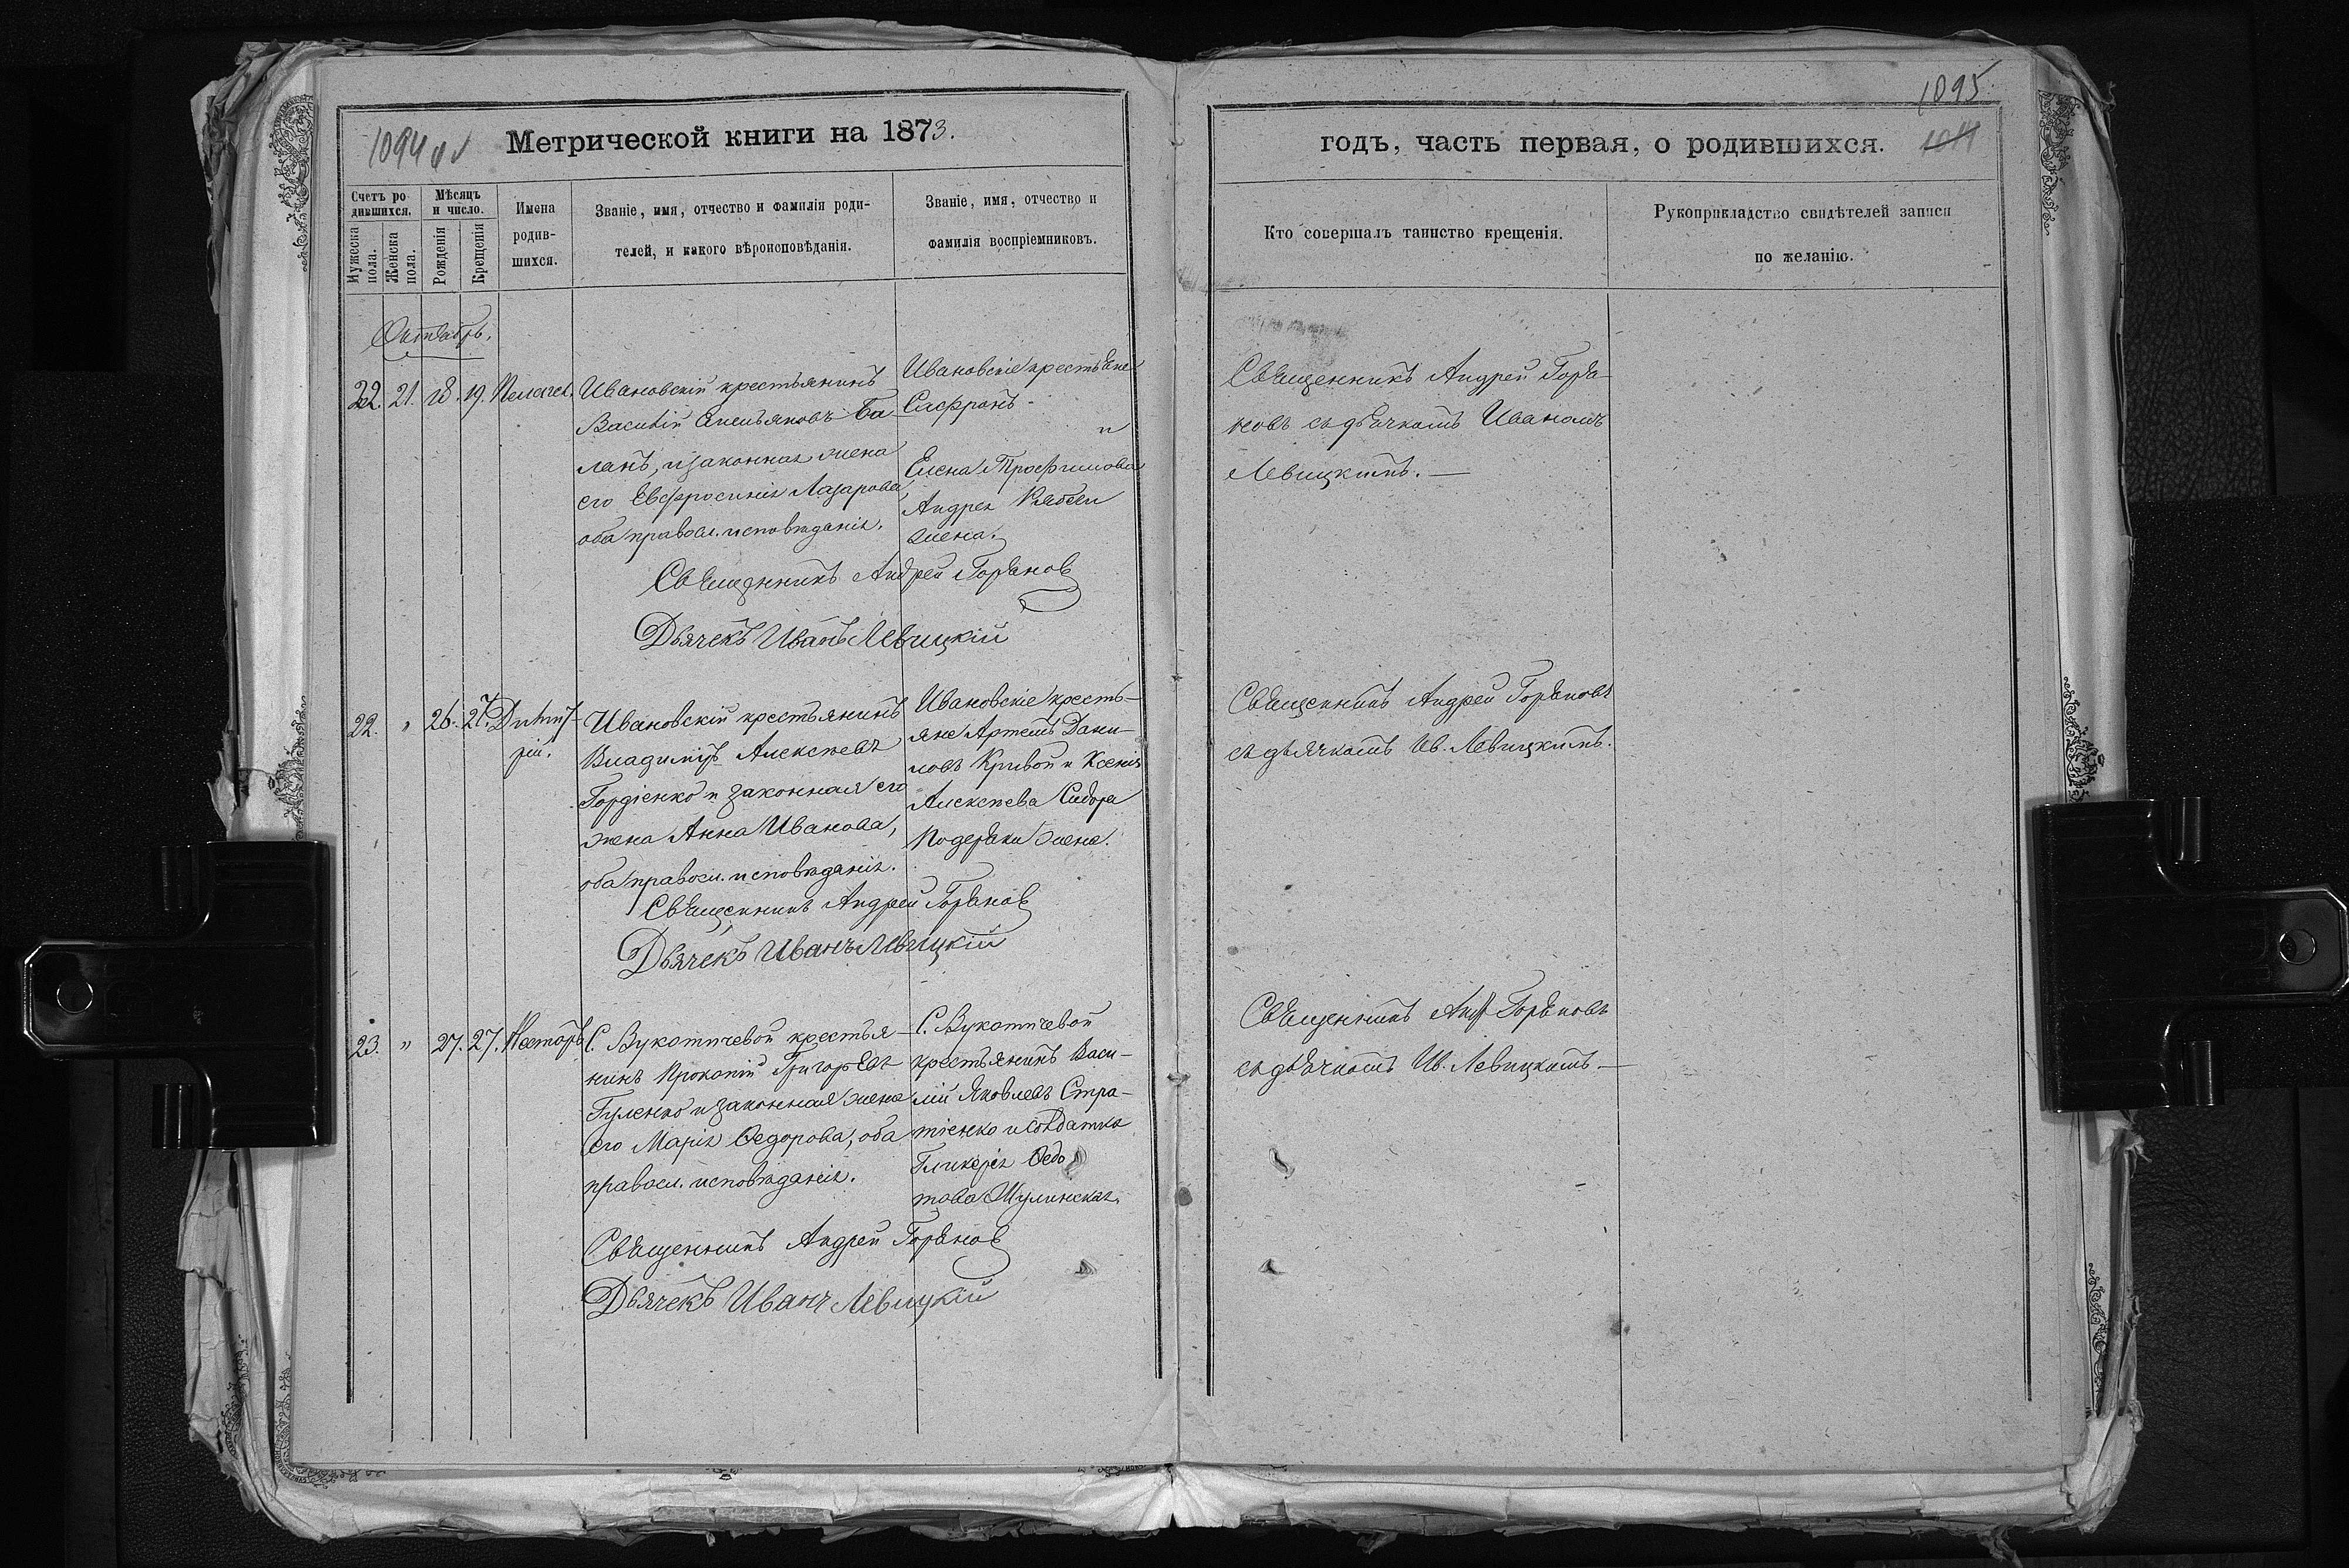 1094 об
Метрической книги на 1873.
Счетъ ро
дившихся.
Мѣсяцъ
и число.
Мужеска
пола.
Женска
пола.
Рожденія
Крещенія
Имена
родив-
шихся.
Званіе, имя, отчество и фамилія роди-
телей, и какого вѣроисповѣданія.
Званіе, имя, отчество и
фамилія воспріемниковъ.
Октябрь.
22. 21. 18. 19. Пелагея.
Ивановскій крестьянинъ
Василій Емельяновъ Ба
ланъ, и законная жена
его Евфросинія Лазарова,
оба правосл. исповѣданія.
Ивановскіе крестьяне
Сафронъ
и
Елена Трофимова
Андрея
жена.
Священникъ Андрей Горяновъ
Дьячекъ Иванъ Левицкій
22. " 26. 27. Димит-
рій.
Ивановскій крестьянинъ
Владиміръ Алексѣевъ
Гордіенко и законная его
жена Анна Иванова,
оба правосл. исповѣданія.
Ивановскіе кресть-
яне Артемъ Дани-
ловъ Кривой и Ксенія
Алексѣева Сидора
Подеряки жена.
Священникъ Андрей Горяновъ
Дьячекъ Иванъ Левицкій
23. " 27. 27. Несторъ.
С. Вукотичевой крестья-
нинъ Прокопій Григорьевъ
Гуленко и законная жена
его Марія Ѳедорова, оба
правосл. исповѣданія.
С. Вукотичевой
крестьянинъ Васи-
лій Яковлевъ Стра-
тіенко и солдатка
Гликерія Ѳедо
това Шулинская.
Священникъ Андрей Горяновъ
Дьячекъ Иванъ Левицкій
1095
годъ, часть первая, о родившихся.
Кто совершалъ таинство крещенія.
Рукоприкладство свидѣтелей записи
по желанію.
Священникъ Андрей Горя-
новъ съ дьячкомъ Иваномъ
Левицкимъ.—
Священникъ Андрей Горяновъ
съ дьячкомъ Ив. Левицкимъ.
Священникъ Анд. Горяновъ
съ дьячкомъ Ив. Левицкимъ.—